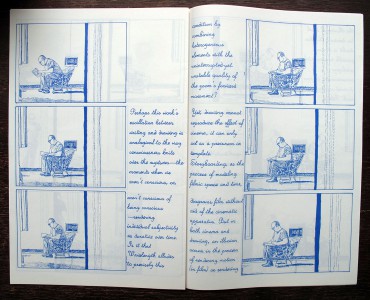 Perhaps this work's
oscillation between
writing and drawing is
analogical to the way
consciousness knits
over the ruptures—the
moments when we
aren't conscious, or
aren't conscious of
being conscious
—rendering
individual subjectivity
as durative over time.
Is it that
Wavelength alludes
to precisely this
condition by
combining
heterogeneous
elements with the
uninterrupted yet
unstable quality of
the zoom's forward
movement?
Yet, drawing cannot
reproduce the effect of
cinema, it can only
act as a precursor or
template.
Storyboarding, as the
process of modeling
filmic space and time,
designates film without
out of the cinematic
apparatus. But in
both cinema and
drawing, an illusion
occurs in the process
of rendering motion
(in film) or rendering